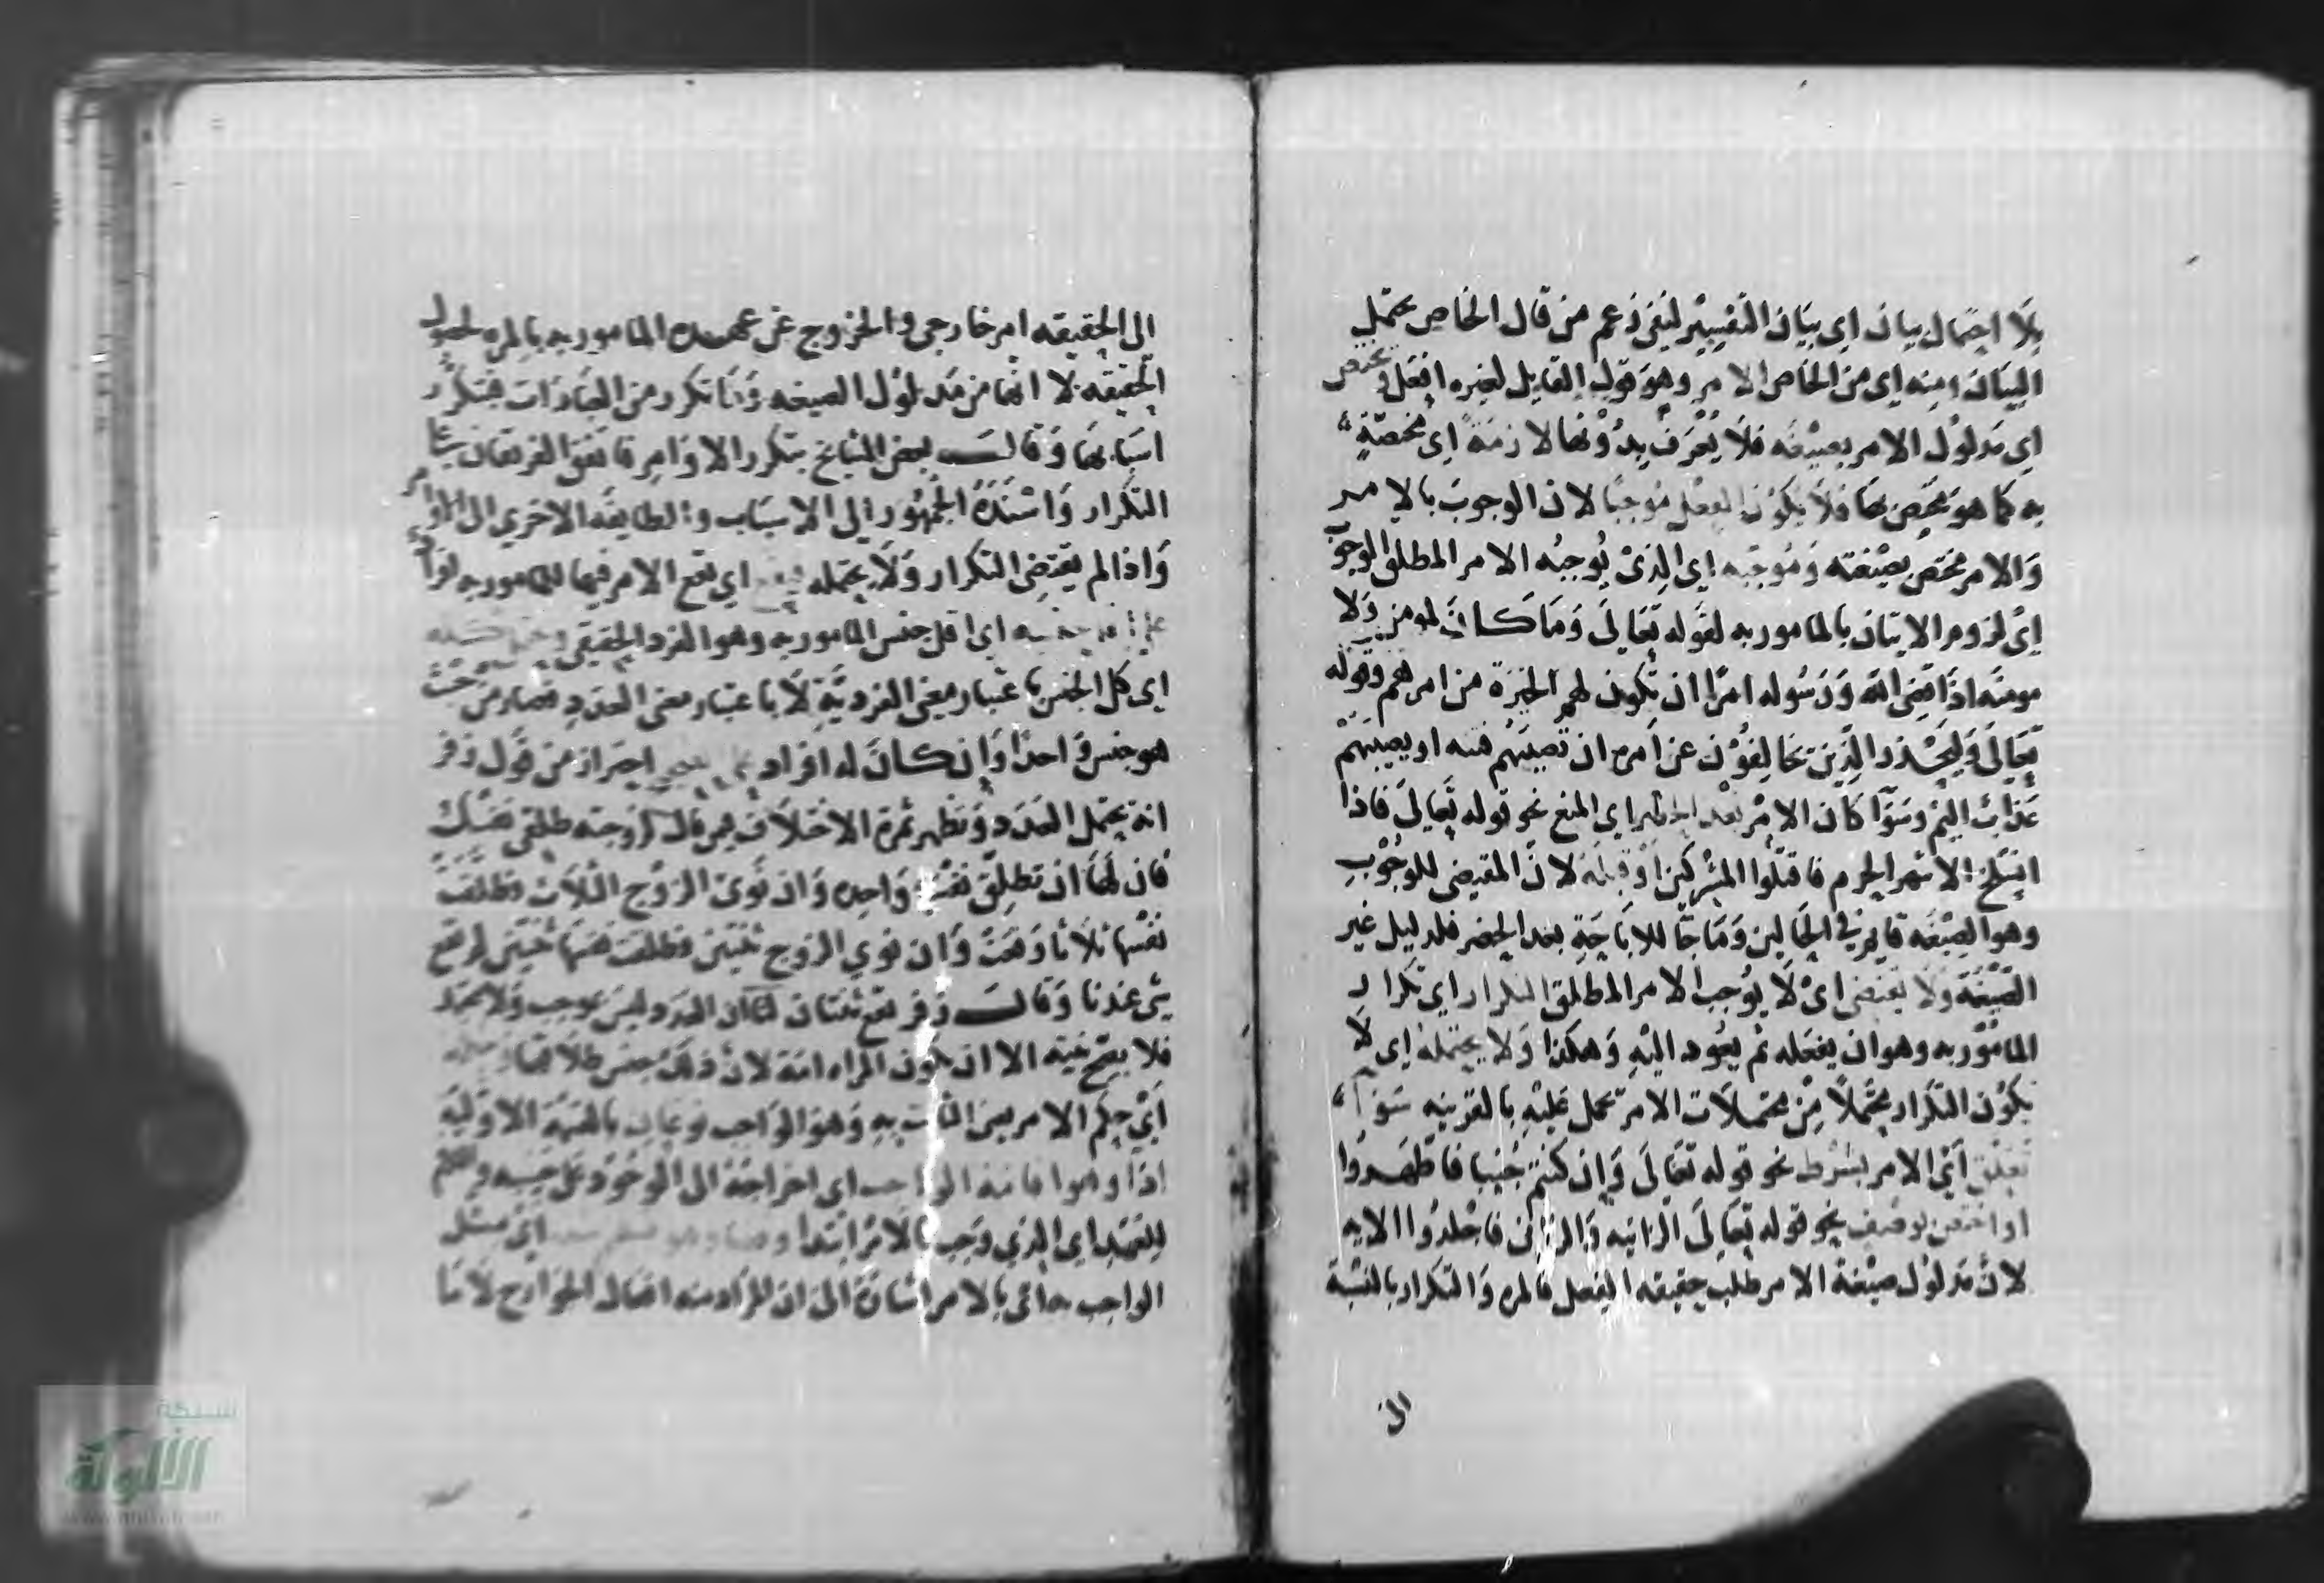 بلا احتمال بيان اي بيان التفسير لنفي زعم من قال الخاص يحتمل
البيان ومنه اي من الخاص الامر وهو قول القايل لغيره افعل ويختص
اي مدلول الامر بصيغه فلا يعرف بدونها لازمة اي مختصة
به كما هو مختص بها فلا يكون الفعل موجبا لان الوجوب بالامر
والامر مختص بصيغته وموجبه اي الذي يوجبه الامر المطلق الوجوب
اي لزوم الاتيان بالمامور به لقوله تعالى وما كان لمومن ولا
مومنه اذا قضى الله ورسوله امرا ان تكون لهم الخيرة من امرهم وقوله
تعالى وليحذر الذين يخالفون عن امره ان تصيبهم فتنه او يصيبهم
عذاب اليم وسوآ كان الامر بعد الحظر اي المنع نحو قوله تعالى فاذا
انسلخ الاشهر الحرم فاقتلوا المشركين او قبله لان المقتضي للوجوب
وهو الصيغه قايم في الحالين وما جآ للاباحة بعد الحضر فلدليل غير
الصيغه ولا يقتضي اي لا يوجب الامر المطلق التكرار اي تكرار
المامور به وهو ان يفعله ثم يعود اليه وهكذا ولا يحتمله اي لا
يكون التكرار محتملا من محتملات الامر يحمل عليه بالقرينه سوآ
تعلق اي الامر بشرط نحو قوله تعالى وان كنتم جنبا فاطهروا
او اختص بوصف نحو قوله تعالى الزانيه والزاني فاجلدوا الايه
لان مدلول صيغة الامر طلب حقيقه الفعل فالمره والتكرار بالنسبة
الى
الى الحقيقه امر خارجي والخروج عن عهده المامور به بالمره لحصول
الحقيقه لا انها من مدلول الصيغه وما تكرر من العبادات فبتكرر
اسبابها وقال بعض المشايخ بتكرر الاوامر فاتفق الفريقان
التكرار واسنده الجمهور الى الاسباب والطايفه الاخري الى الاوامر
واذا لم يقتضي التكرار ولا يحتمله اي يقع الامر فيما للمامور به افراد
على اقل جنسه اي اقل جنس المامور به وهو الفرد الحقيقي
اي كل الجنس باعتبار معنى الفردية لا باعتبار معنى العدد فصار من حيث
هو جنس واحدا وان كان له افراد احتراز من قول زفر
انه يحتمل العدد وتظهر ثمرة الاختلاف فيمن قال لزوجته طلقي نفسك
فان لها ان تطلق نفسها واحده وان نوى الزوج الثلاث فطلقت
نفسها ثلاثا وقعت وان نوي الزوج ثنتين فطلقت نفسها ثنتين لم يقع
شي عندنا وقال زفر تقع ثنتان لنا ان العدد ليس بموجب ولا محتمل
فلا تصح نيته الا ان تكون المراه امة لان ذلك جنس طلاقها
اي حكم الامر بمعنى الثابت به وهو الواجب نوعان بالقسمة الاوليه
ادا وهو اقامة الواجب اي اخراجه الى الوجود
اي الذي وجب بالامر ابتدا اي مثل
الواجب بالامر اشارة الى ان المراد منه افعال الجوارح لا ما
شبكة
الألوكة